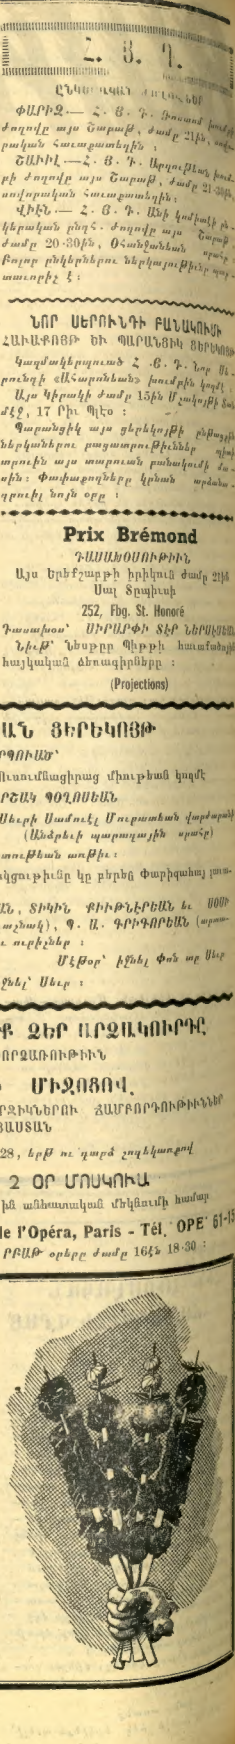 Հ. Յ. Դ.
ՓԱՐԻԶ.— Հ. Յ. Դ.
ժողովը այս Շաբաթ, ժամը 21ին,
րական հաւաքատեղին :
ՇԱՒԻԼ.—Հ. Յ. Դ.
րի ժողովը այս Շաբաթ, ժամը 21.30ին,
սովորական հաւաքատեղին :
ՎԻԷՆ.— Հ. Յ. Դ. Անի կոմիտէի
կերական ընդհ. ժողովը այս Շաբաթ
ժամը 20.30ին, Օհանջանեան սրահը
Բոլոր ընկերներու ներկայութիւնը պար-
տաւորիչ է :
ՆՈՐ ՍԵՐՈՒՆԴԻ ԲԱՆԱԿՈՒՄԻ
ՀԱՒԱՔՈՅԹ ԵՒ ՊԱՐԱՆՑԻԿ ՑԵՐԵԿՈՅԹ
Կազմակերպուած Հ.Յ.Դ. Նոր Սե-
րունդի «Ահարոնեան» խումբին կողմէ :
Այս կիրակի ժամը 15ին Մշակոյթի Տան
մէջ, 17 Րիւ Պլէօ :
Պարանցիկ այս ցերեկոյթի ընթացքին
ներկաներու բացատրութիւններ պիտի
տրուին այս տարուան բանակումի մա-
սին : Փափաքողները կրնան արձանա-
գրուիլ նոյն օրը :
Prix Brémond
ԴԱՍԱԽՕՍՈՒԹԻՒՆ
Այս Երեքշաբթի իրիկուն ժամը 21ին
Սալ Տըպիւսի
252, Fbg. St. Honoré
Դասախօս՝ ՍԻՐԱՐՓԻ ՏԷՐ ՆԵՐՍԷՍԵԱՆ
Նիւթ՝
հայկական ձեռագիրները :
(Projections)
ԱՆ ՑԵՐԵԿՈՅԹ
ՐՊՈՒԱԾ՝
Ուսումնացիրաց միութեան կողմէ
ՐՇԱԿ ՊՕՂՈՍԵԱՆ
Սեւրի Սամուէլ Մուրատեան վարժարանի
(Անձրեւի պարագային սրահը)
տութեան առթիւ :
կցութիւնը կը բերեն Փարիզահայ
ԱՆ, ՏԻԿԻՆ ՔԻՒԹՆԷՐԵԱՆ եւ
աշնակ), Պ. Ա. ԳՐԻԳՈՐԵԱՆ
ւ ուրիշներ :
Մէթրօ՝ իջնել Փոն տը Սեւր
իջնել՝ Սեւր :
Ք ՁԵՐ ԱՐՁԱԿՈՒՐԴԸ
ՈՐՁԱՌՈՒԹԻՒՆ
ՄԻՋՈՑՈՎ
ՐՁԻԿՆԵՐՈՒ ՃԱՄԲՈՐԴՈՒԹԻՒՆՆԵՐ
ՅԱՍՏԱՆ
28, երթ ու դարձ շոգեկառքով
2 ՕՐ ՄՈՍԿՈՒԱ
ին անհատական մեկնումի համար
de l'Opéra, Paris - Tél. OPE 61-15
ՐԲԱԹ օրերը ժամը 16էն 18.30 :